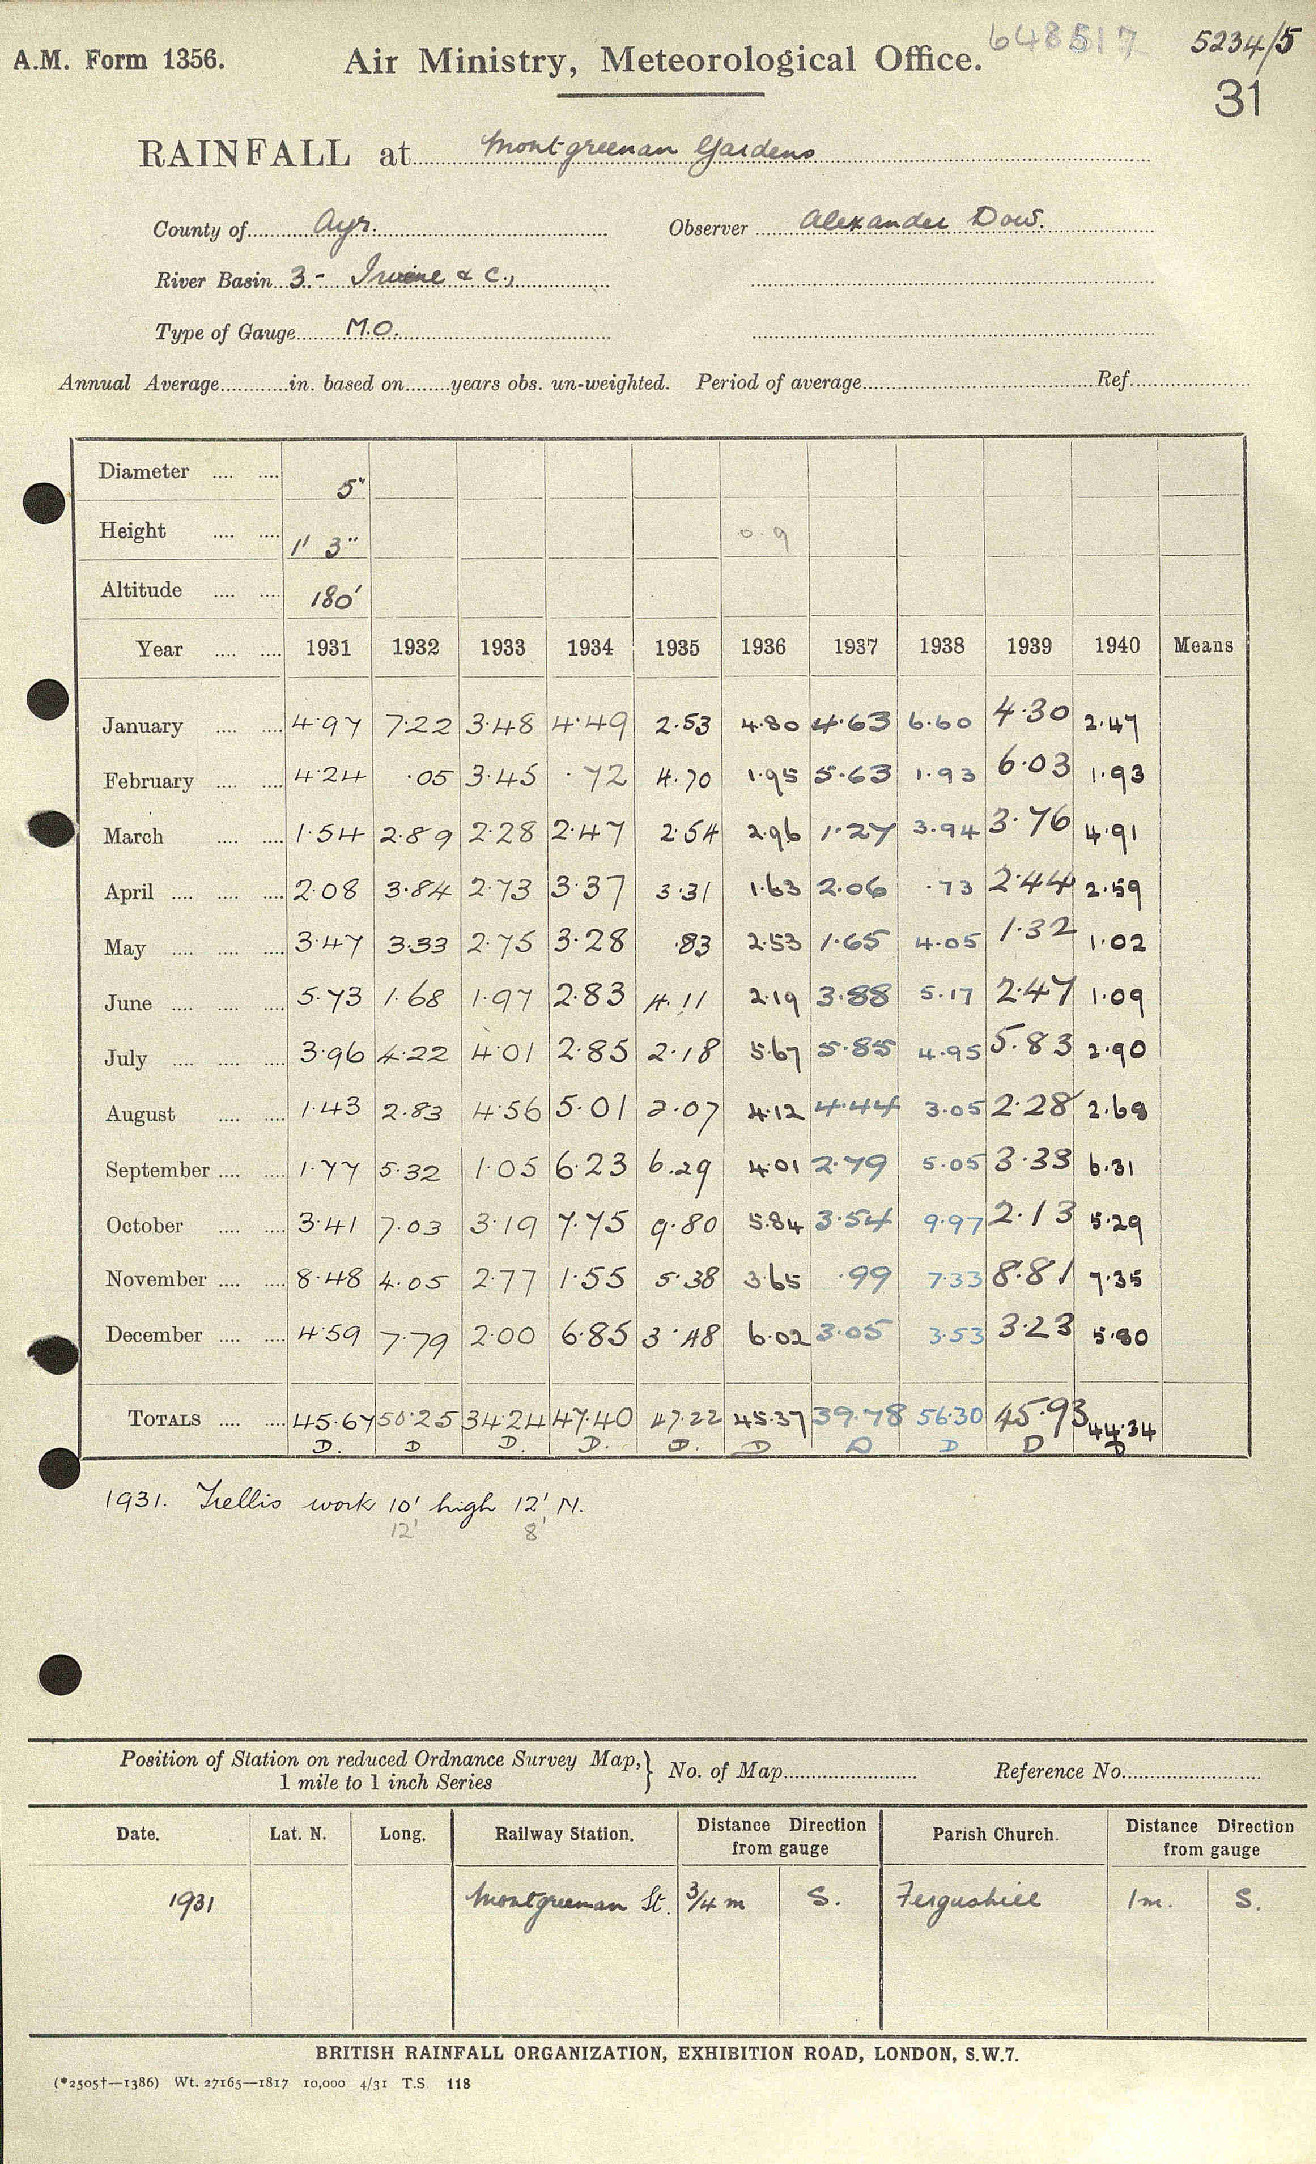 648517 5234/5
A.M. Form 1356. Air Ministry, Meteorological Office.
31
RAINFALL at Montgreenan Gardens
County of Ayr. Observer Alexander Dow.
River Basin 3.- Irvine & C.,
Type of Gauge M.O.
Annual Average in. based on years obs. un-weighted. Period of average Ref.
Diameter 5"
Height 1' 3" 0 9
Altitude 180'
Year 1931 1932 1933 1934 1935 1936 1937 1938 1939 1940 Means
January 4.97 7.22 3.48 4.49 2.53 4.80 4.63 6.60 4.30 2.47
February 4.24 .05 3.45 .72 4.70 1.95 5.63 1.93 6.03 1.93
March 1.54 2.89 2.28 2.47 2.54 2.96 1.27 3.94 3.76 4.91
April 2.08 3.84 2.73 3.37 3.31 1.63 2.06 .73 2.44 2.59
May 3.47 3.33 2.75 3.28 .83 2.53 1.65 4.05 1.32 1.02
June 5.73 1.68 1.97 2.83 4.11 2.19 3.88 5.17 2.47 1.09
July 3.96 4.22 4.01 2.85 2.18 5.67 5.85 4.95 5.83 2.90
August 1.43 2.83 4.56 5.01 2.07 4.12 4.44 3.05 2.28 2.68
September 1.77 5.32 1.05 6.23 6.29 4.01 2.79 5.05 3.33 6.31
October 3.41 7.03 3.19 7.75 9.80 5.84 3.54 9.97 2.13 5.29
November 8.48 4.05 2.77 1.55 5.38 3.65 .99 7.33 8.81 7.35
December 4.59 7.79 2.00 6.85 3.48 6.02 3.05 3.53 3.23 5.80
TOTALS 45.67 50.25 34.24 47.40 47.22 45.37 39.78 56.30 45.93 44.34
D. D D. D. D. D D D D D
1931. Trellis work 10' high 12' N.
12' 8'
Position of Station on reduced Ordnance Survey Map, 1 mile to 1 inch Series } No. of Map Reference No.
Date. Lat. N. Long. Railway Station. Distance Direction from gauge Parish Church. Distance Direction from gauge
1931 Montgreenan St. 3/4 m S. Fergushill 1m. S.
BRITISH RAINFALL ORGANIZATION, EXHIBITION ROAD, LONDON, S.W.7.
(*2505†—1386) Wt. 27165—1817 10,000 4/31 T.S. 118